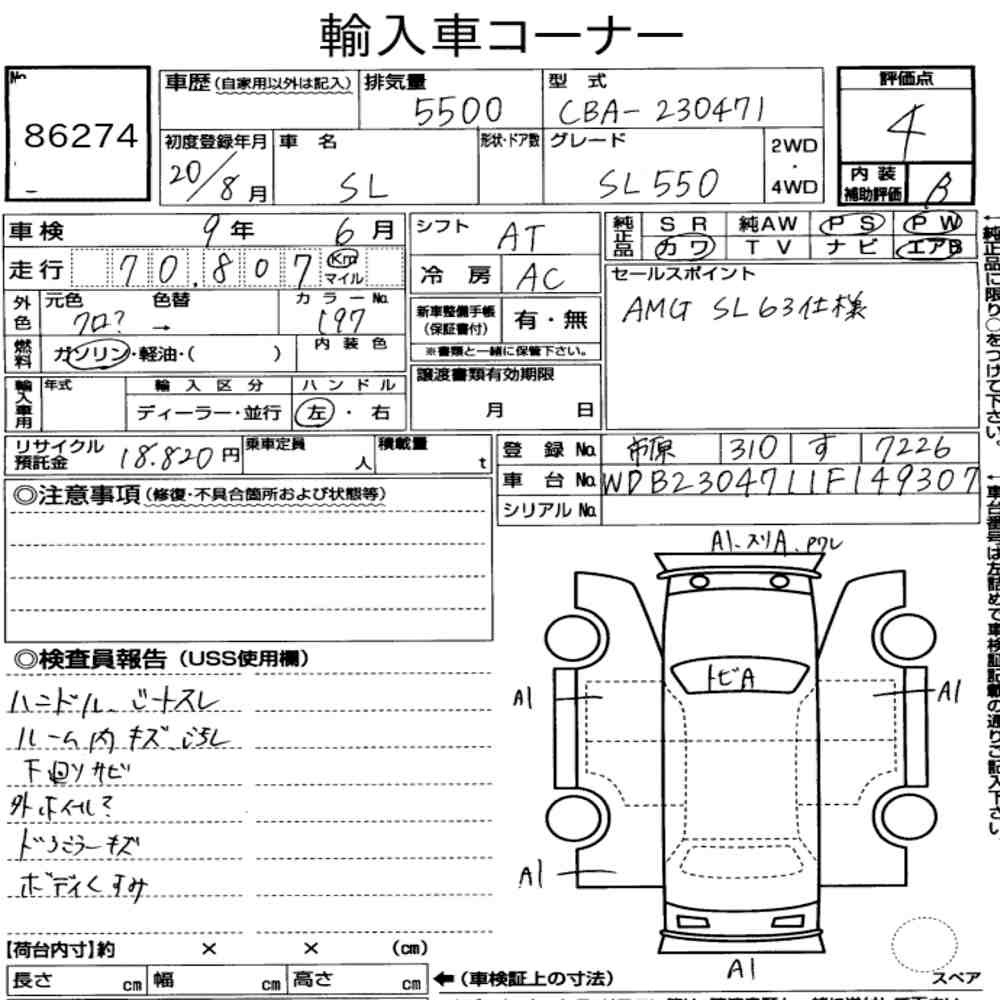 輸入車コーナー
No.
86274
車歴(自家用以外は記入) 排気量 5500 型式 CBA-230471
初度登録年月 20/8月 車名 SL 形状・ドア数 グレード SL550 2WD・4WD
評価点 4
内装補助評価 B
車検 9年 6月
走行 70.807 Km マイル
外色 元色 クロ? 色替 → カラーNo. 197
燃料 ガソリン・軽油・( ) 内装色
輸入車用 年式 輸入区分 ディーラー・並行 ハンドル 左・右
シフト AT
冷房 AC
新車整備手帳(保証書付) 有・無
※書類と一緒に保管下さい。
譲渡書類有効期限
月 日
純正品 SR 純AW PS PW
カワ TV ナビ エアB
セールスポイント
AMG SL63仕様
←純正品に限り○をつけて下さい。
リサイクル預託金 18.820円 乗車定員 人 積載量 t
登録No. 市原 310 す 7226
車台No. WDB2304711F149307
シリアルNo.
←車台番号は左詰めで車検証記載の通りご記入下さい
◎注意事項(修復・不具合箇所および状態等)
◎検査員報告(USS使用欄)
ハンドル ゴナスレ
ルーム内キズ
下回りサビ
外ホイール?
ドアミラーキズ
ボディくすみ
A1、スリA、
トビA
A1
A1
A1
A1
スペア
【荷台内寸】約 × × (cm)
長さ cm 幅 cm 高さ cm ←(車検証上の寸法)